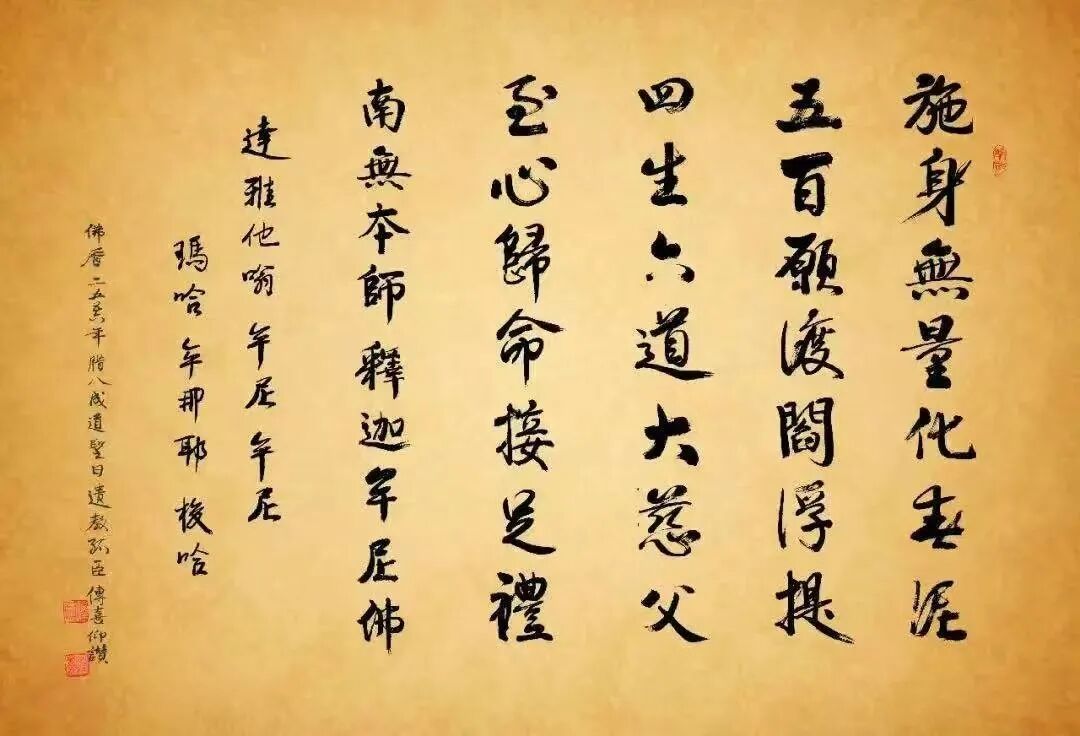 施身無量化春泥
五百願渡閻浮提
四生六道大慈父
至心歸命接足禮
南無本師釋迦牟尼佛
達雅他嗡 牟尼牟尼
瑪哈 牟那耶 梭哈
佛曆二五五年腊八成道聖日遺教孤臣傳喜仰讚